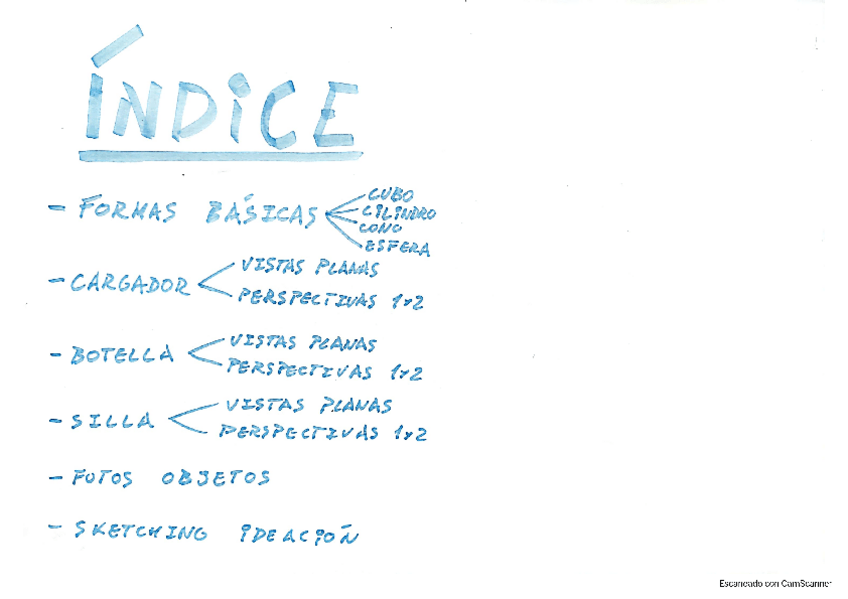 ÍNDICE
- FORMAS BÁSICAS
CUBO
CILINDRO
CONO
ESFERA
- CARGADOR
VISTAS PLANAS
PERSPECTIVAS 1y2
- BOTELLA
VISTAS PLANAS
PERSPECTIVAS 1y2
- SILLA
VISTAS PLANAS
PERSPECTIVAS 1y2
- FOTOS OBJETOS
- SKETCHING IDEACIÓN
Escaneado con CamScanner